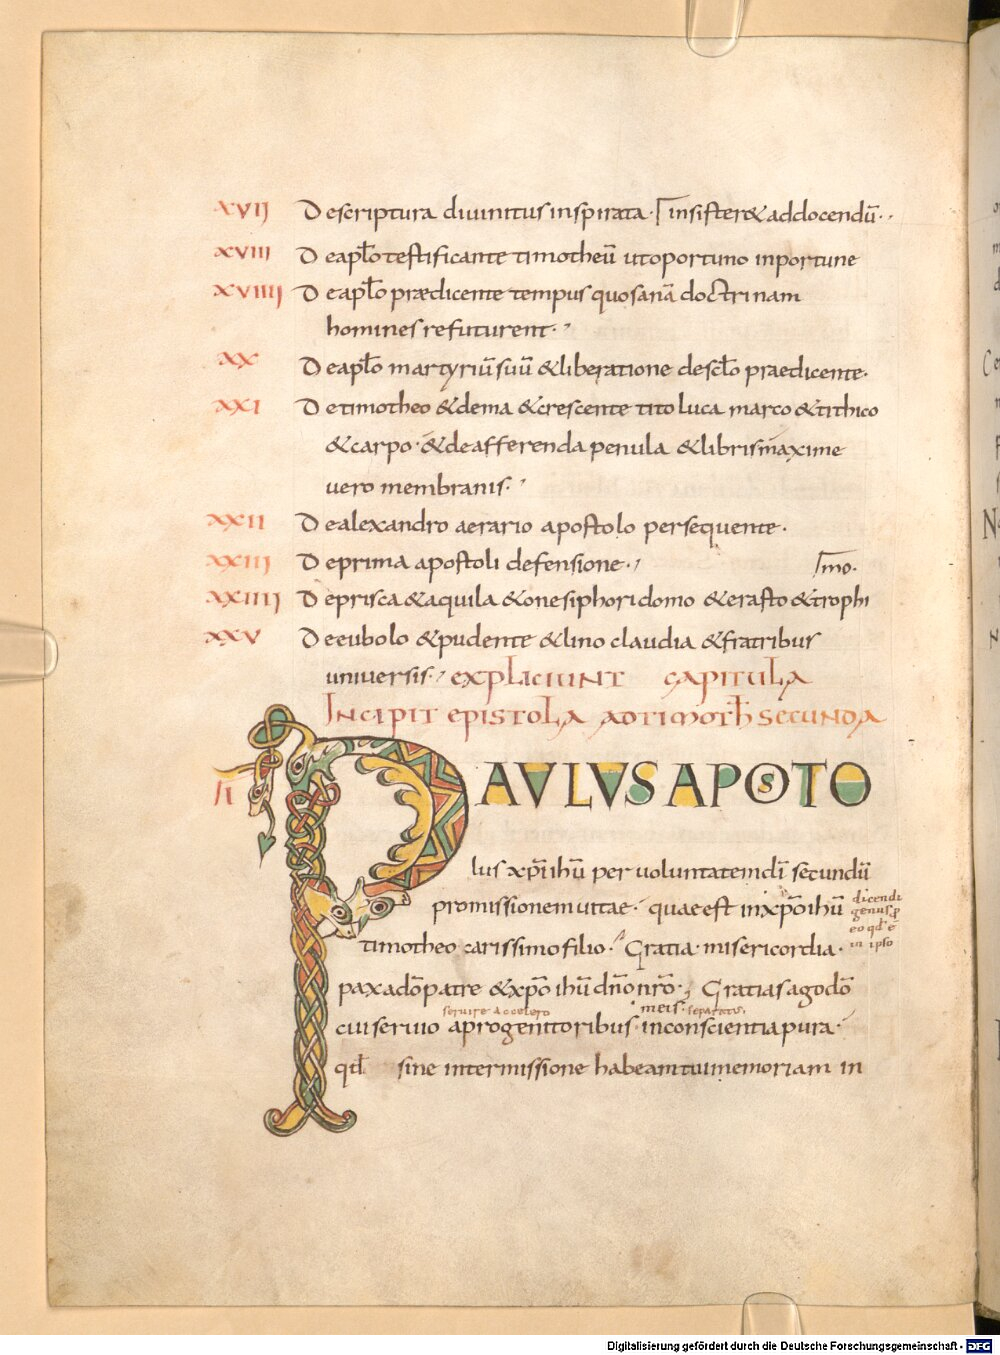 XVII De scriptura divinitus inspirata· insister& addocendū·
XVIII De apl̄o testificante timotheū ut oportuno inportune
XVIIII De apl̄o prædicente tempus quo sanā doctrinam
homines refuturent·
XX De apl̄o martyriū suū & liberatione de scł̄o praedicente·
XXI De timotheo & dema & crescente tito luca marco & tithico
& carpo· & de afferenda penula & libris maxime
vero membranis·
XXII De alexandro aerario apostolo persequente·
XXIII De prima apostoli defensione·
mo·
XXIIII De prisca & aquila & onesiphori domo & erasto & trophi
XXV De eubolo & pudente & lino claudia & fratribus
universis· EXPLICIUNT CAPITULA
INCIPIT EPISTOLA AD TIMOTH̄ SECUNDA
PAULUS APOSTO
lus xp̄i ih̄u per voluntatem dī secundū
promissionem vitae· quae est in xp̄o ih̄u
dicendi
genus
eo qd ē
in ipso
timotheo carissimo filio· Gratia· misericordia·
pax a dō patre & xp̄o ih̄u dn̄o nr̄o· Gratias ago dō
servire accelero meis· separatis,
cui servio a progenitoribus· in conscientia pura·
qd sine intermissione habeam tui memoriam in
Digitalisierung gefördert durch die Deutsche Forschungsgemeinschaft - DFG